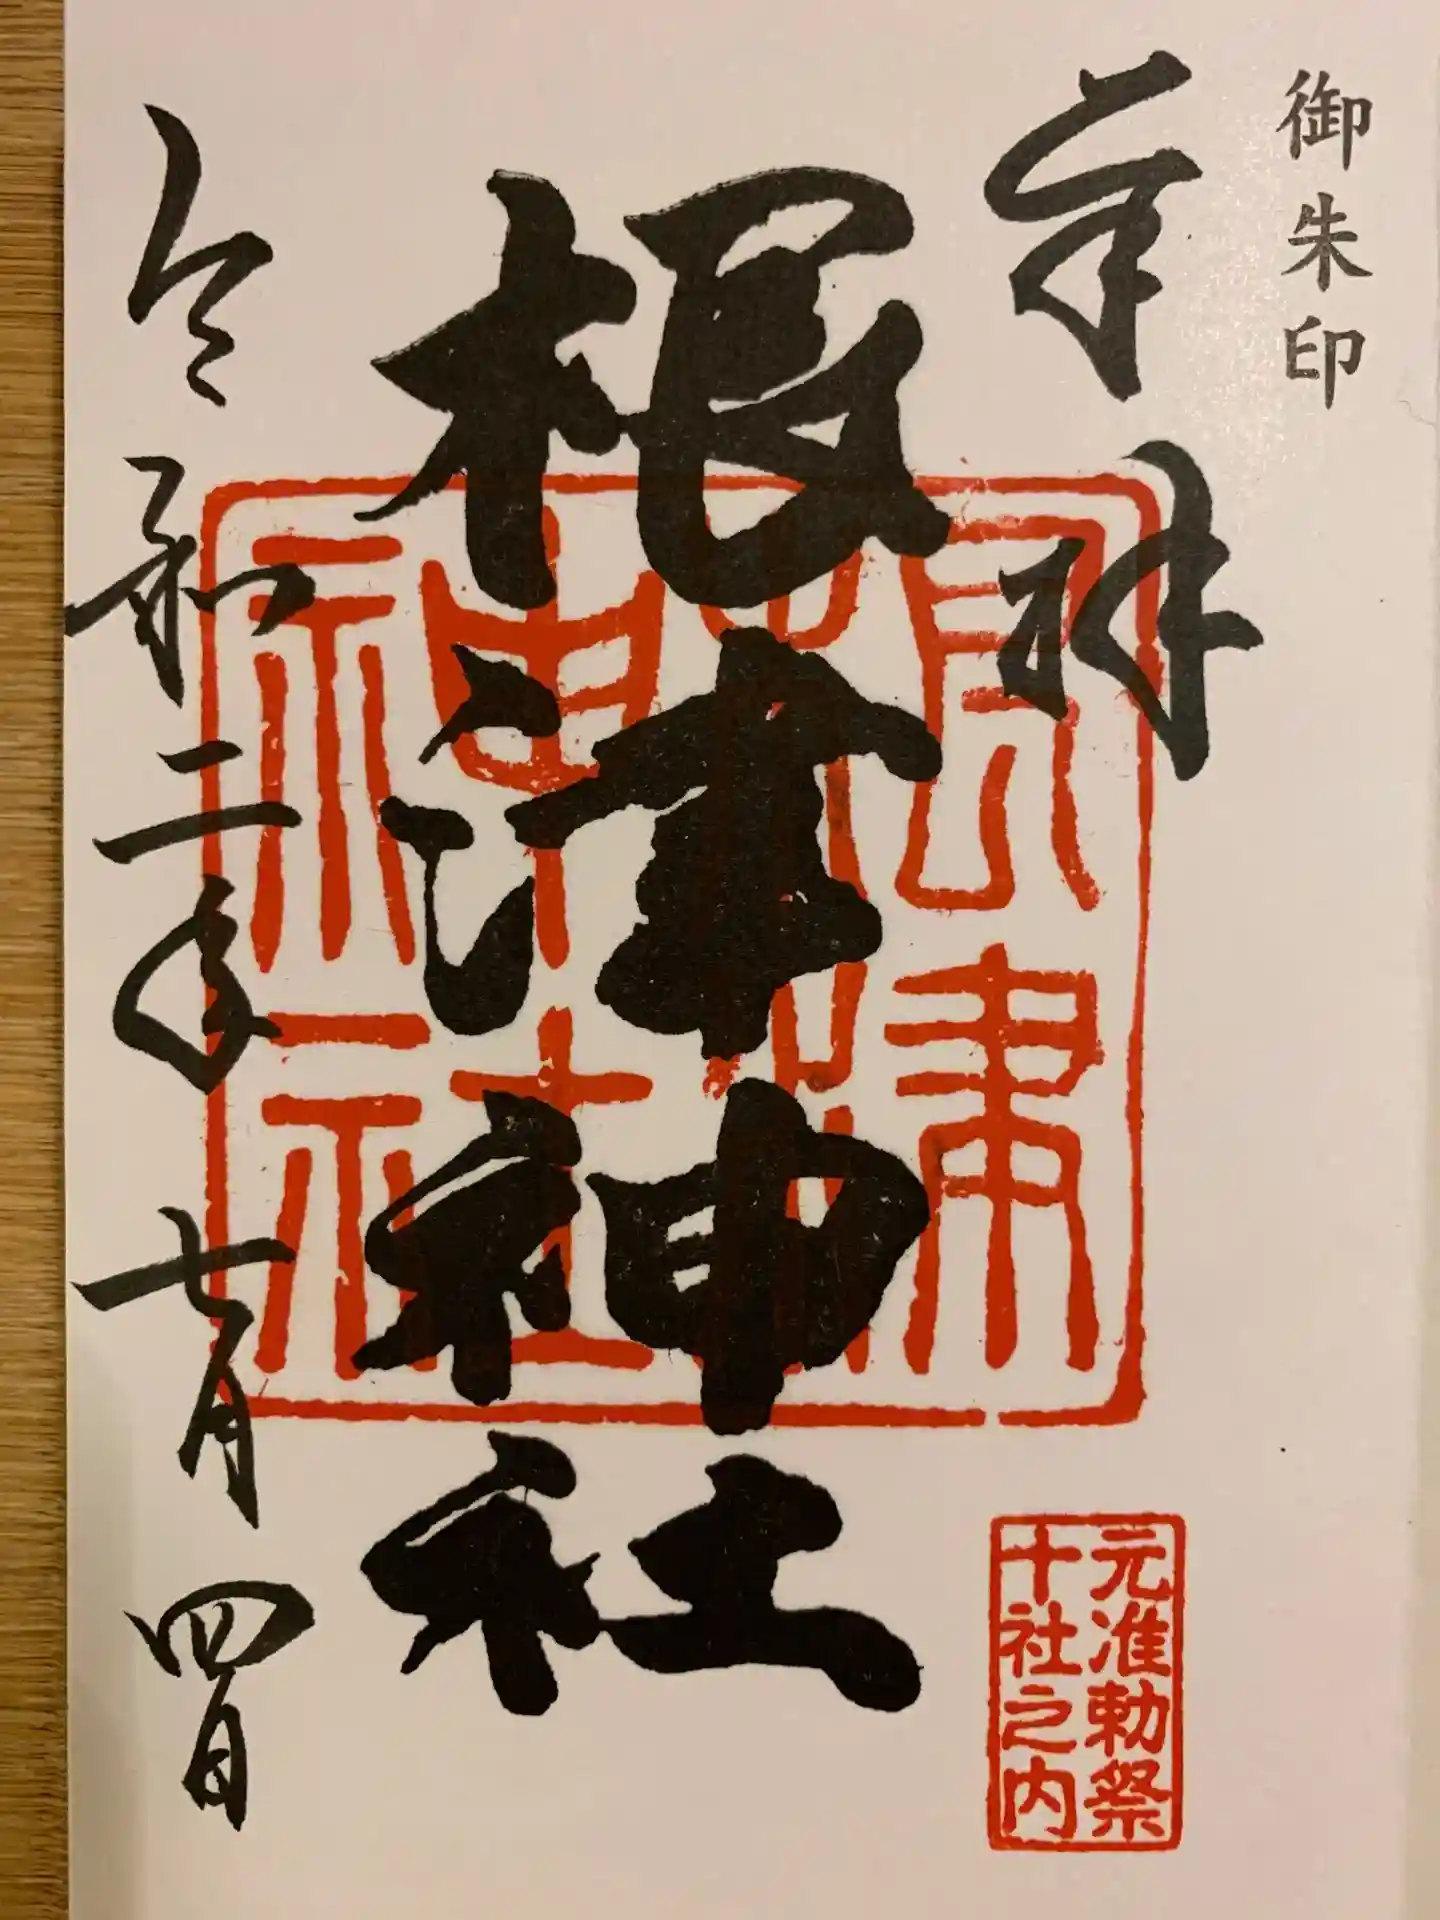 御朱印
奉拝
根津神社
根津神社
令和二年七月四日
元准勅祭
十社之内